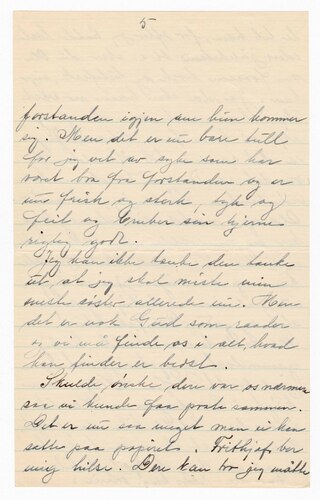 5
forstanden igjen om hun kommer
sig. Men det er nu bare tull
for jeg vet av syke som har
vært bra fra forstanden og er
nu frisk og stærk, tyk og
feit og bruker sin hjerne
rigtig godt.
Jeg kan ikke tænke den tanke
ut, at jeg skal miste min
eneste søster allerede nu. Men
det er nok Gud som raader
os vi må finde os i alt, hvad
han finder er bedst.
Skulde ønske dere var os nærmere
saa vi kunde faa prate sammen.
Det er nu saa meget man ei kan
sætte paa papiret. Frithjof ber
mig hilse. Dere kan tro jeg måtte